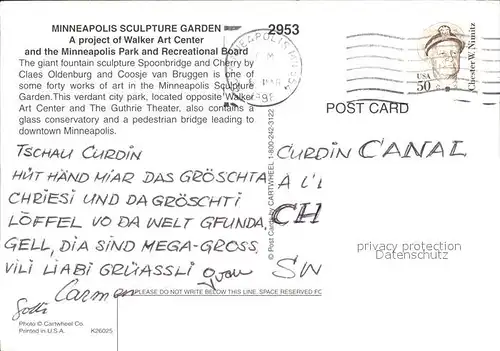 MINNEAPOLIS SCULPTURE GARDEN
A project of Walker Art Center
and the Minneapolis Park and Recreational Board
The giant fountain sculpture Spoonbridge and Cherry by
Claes Oldenburg and Coosje van Bruggen is one of
some forty works of art in the Minneapolis Sculpture
Garden.This verdant city park, located opposite Walker
Art Center and The Guthrie Theater, also contains a
glass conservatory and a pedestrian bridge leading to
downtown Minneapolis.
2953
MINNEAPOLIS
USA
50
Chester W. Nimitz
POST CARD
TSCHAU CURDIN
HÜT HÄND MIAR DAS GRÖSCHTA
CHRIESI UND DA GRÖSCHTI
LÖFFEL VO DA WELT GFUNDA,
GELL, DIA SIND MEGA-GROSS.
VILI LIABI GRÜASSLI
Carmen
© Post Cards by CARTWHEEL 1-800-242-3122
CURDIN CANAL
A L'L
CH
SW
privacy protection
Datenschutz
PLEASE DO NOT WRITE BELOW THIS LINE. SPACE RESERVED FO
Photo © Cartwheel Co.
Printed in U.S.A.
K26025